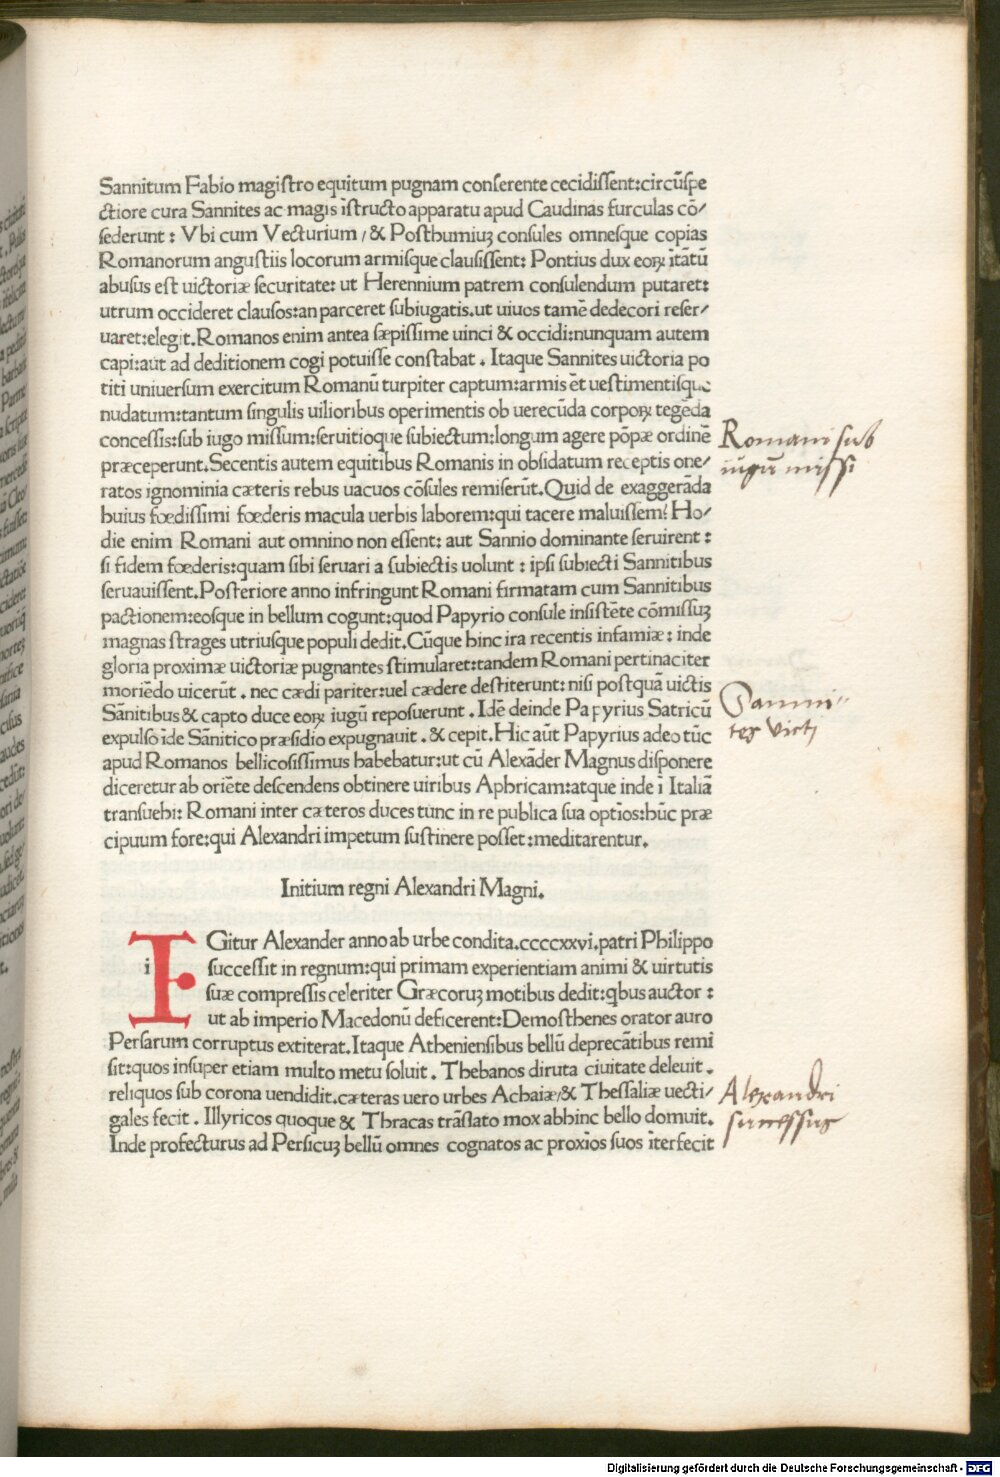 Sannitum Fabio magistro equitum pugnam conserente cecidissent:circũspe
ctiore cura Sannites ac magis ĩstructo apparatu apud Caudinas furculas cõ/
sederunt : Vbi cum Vecturium / & Posthumiuȝ consules omnesque copias
Romanorum angustiis locorum armisque clausissent: Pontius dux eoꝝ ĩtãtũ
abusus est uictoriæ securitate: ut Herennium patrem consulendum putaret:
utrum occideret clausos:an parceret subiugatis.ut uiuos tamẽ dedecori reser/
uaret:elegit.Romanos enim antea sæpissime uinci & occidi:nunquam autem
capi:aut ad deditionem cogi potuisse constabat . Itaque Sannites uictoria po
titi uniuersum exercitum Romanũ turpiter captum:armis ẽt uestimentisque
nudatum:tantum singulis uilioribus operimentis ob uerecũda corpoꝝ tegẽda
concessis:sub iugo missum:seruitioque subiectum:longum agere põpæ ordinẽ
præceperunt.Secentis autem equitibus Romanis in obsidatum receptis one/
ratos ignominia cæteris rebus uacuos cõsules remiserũt.Quid de exaggerãda
huius fœdissimi fœderis macula uerbis laborem:qui tacere maluissem? Ho/
die enim Romani aut omnino non essent: aut Sannio dominante seruirent :
si fidem fœderis:quam sibi seruari a subiectis uolunt : ipsi subiecti Sannitibus
seruauissent.Posteriore anno infringunt Romani firmatam cum Sannitibus
pactionem:eosque in bellum cogunt:quod Papyrio consule insistẽte cõmissuȝ
magnas strages utriusque populi dedit.Cũque hinc ira recentis infamiæ: inde
gloria proximæ uictoriæ pugnantes stimularet:tandem Romani pertinaciter
moriẽdo uicerũt . nec cædi pariter:uel cædere destiterunt: nisi postquã uictis
Sãnitibus & capto duce eoꝝ iugũ reposuerunt . Idẽ deinde Papyrius Satricũ
expulso ĩde Sãnitico præsidio expugnauit . & cepit.Hic aũt Papyrius adeo tũc
apud Romanos bellicosissimus habebatur:ut cũ Alexãder Magnus disponere
diceretur ab oriẽte descendens obtinere uiribus Aphricam:atque inde ĩ Italiã
transuehi: Romani inter cæteros duces tunc in re publica sua optĩos:hũc præ
cipuum fore:qui Alexandri impetum sustinere posset:meditarentur.
Initium regni Alexandri Magni.
IGitur Alexander anno ab urbe condita.ccccxxvi.patri Philippo
successit in regnum:qui primam experientiam animi & uirtutis
suæ compressis celeriter Græcoruȝ motibus dedit:qbus auctor :
ut ab imperio Macedonũ deficerent:Demosthenes orator auro
Persarum corruptus extiterat.Itaque Atheniensibus bellũ deprecãtibus remi
sit:quos insuper etiam multo metu soluit . Thebanos diruta ciuitate deleuit .
reliquos sub corona uendidit.cæteras uero urbes Achaiæ/& Thessaliæ uecti/
gales fecit . Illyricos quoque & Thracas trãslato mox abhinc bello domuit.
Inde profecturus ad Persicuȝ bellũ omnes cognatos ac proxĩos suos ĩterfecit
Romani sub
iugũ missi
Samni-
tes victi
Alexandri
successus
Digitalisierung gefördert durch die Deutsche Forschungsgemeinschaft - DFG